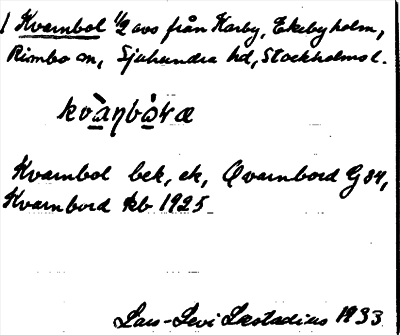 1 Kvarnbol 1/2 avs från Karby, Ekebyholm,
Rimbo sn, Sjuhundra hd, Stockholms l.
kvàṇbóṛæ
Kvarnbol bek, ek, Qvarnbord G 84,
Kvarnbord kb 1925
Lars-Levi Læstadius 1933